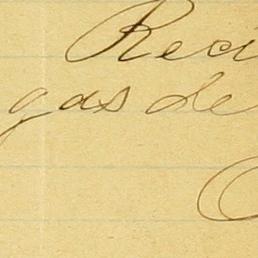 Reci
gas de